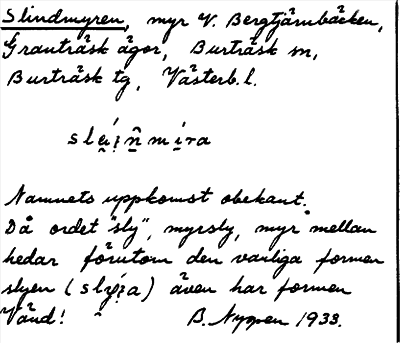 Slindmyren, myr V. Bergtjärnbäcken,
Granträsk ägor, Burträsk sn,
Burträsk tg, Västerb.l.
Namnets uppkomst obekant.
Då ordet "sly", myrsly, myr mellan
hedar förutom den vanliga formen
slyen (      ) även har formen
Vänd! B. Nygren 1933.